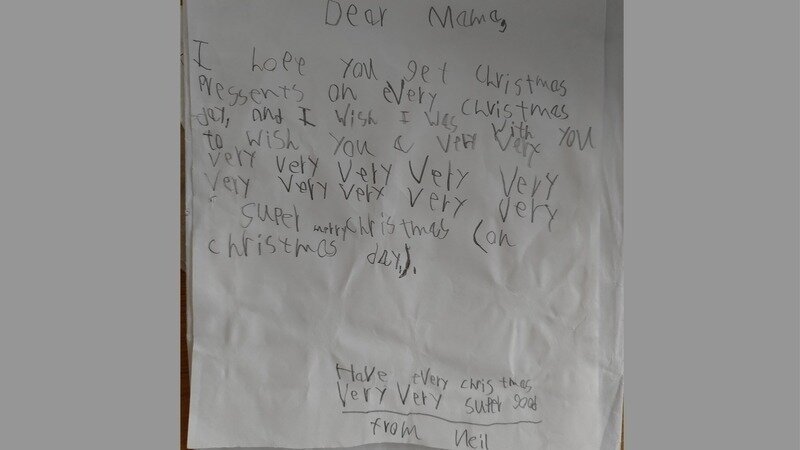 Dear Mama,
I hope you get christmas
pressents on every christmas
day, and I wish I was with you
to wish you a very very
very very very very very
very very very very very
super merry christmas (on
christmas day.).
Have every christmas
very very super good
from Neil